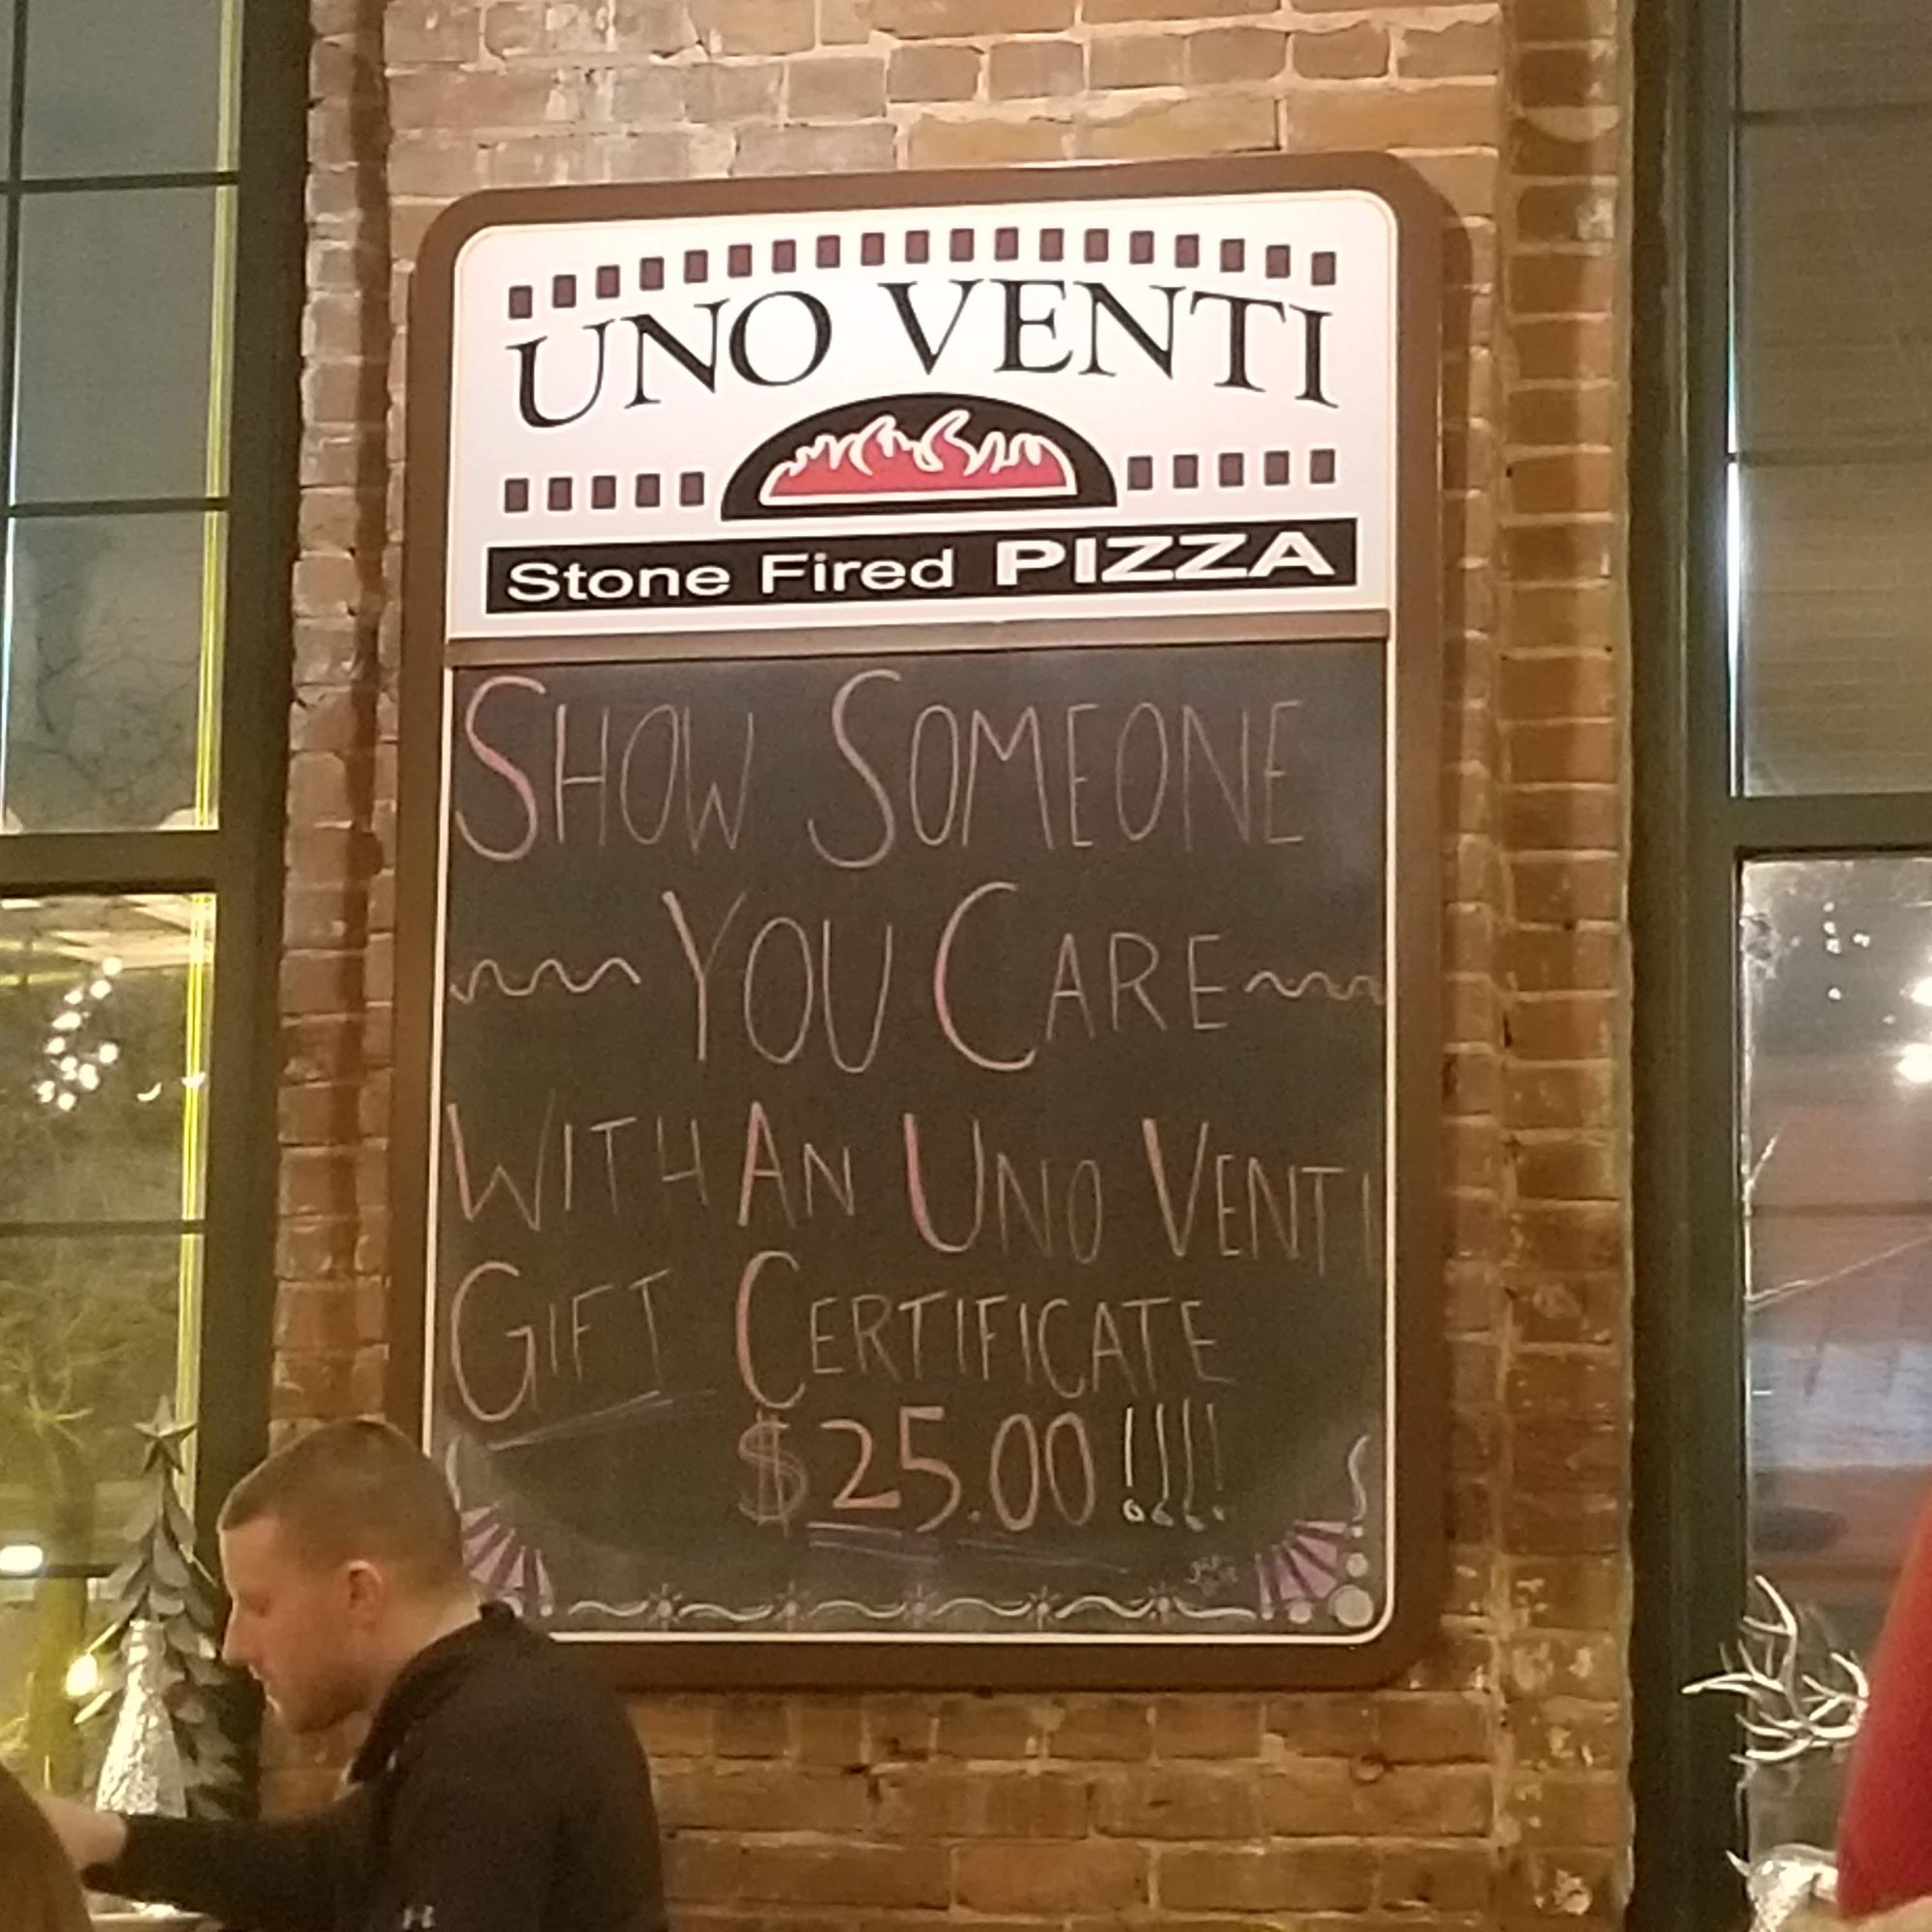 UNO VENTI
Stone Fired PIZZA
SHOW SOMEONE
YOU CARE
WITH AN UNO VENTI
GIFT CERTIFICATE
$25.00!!!!